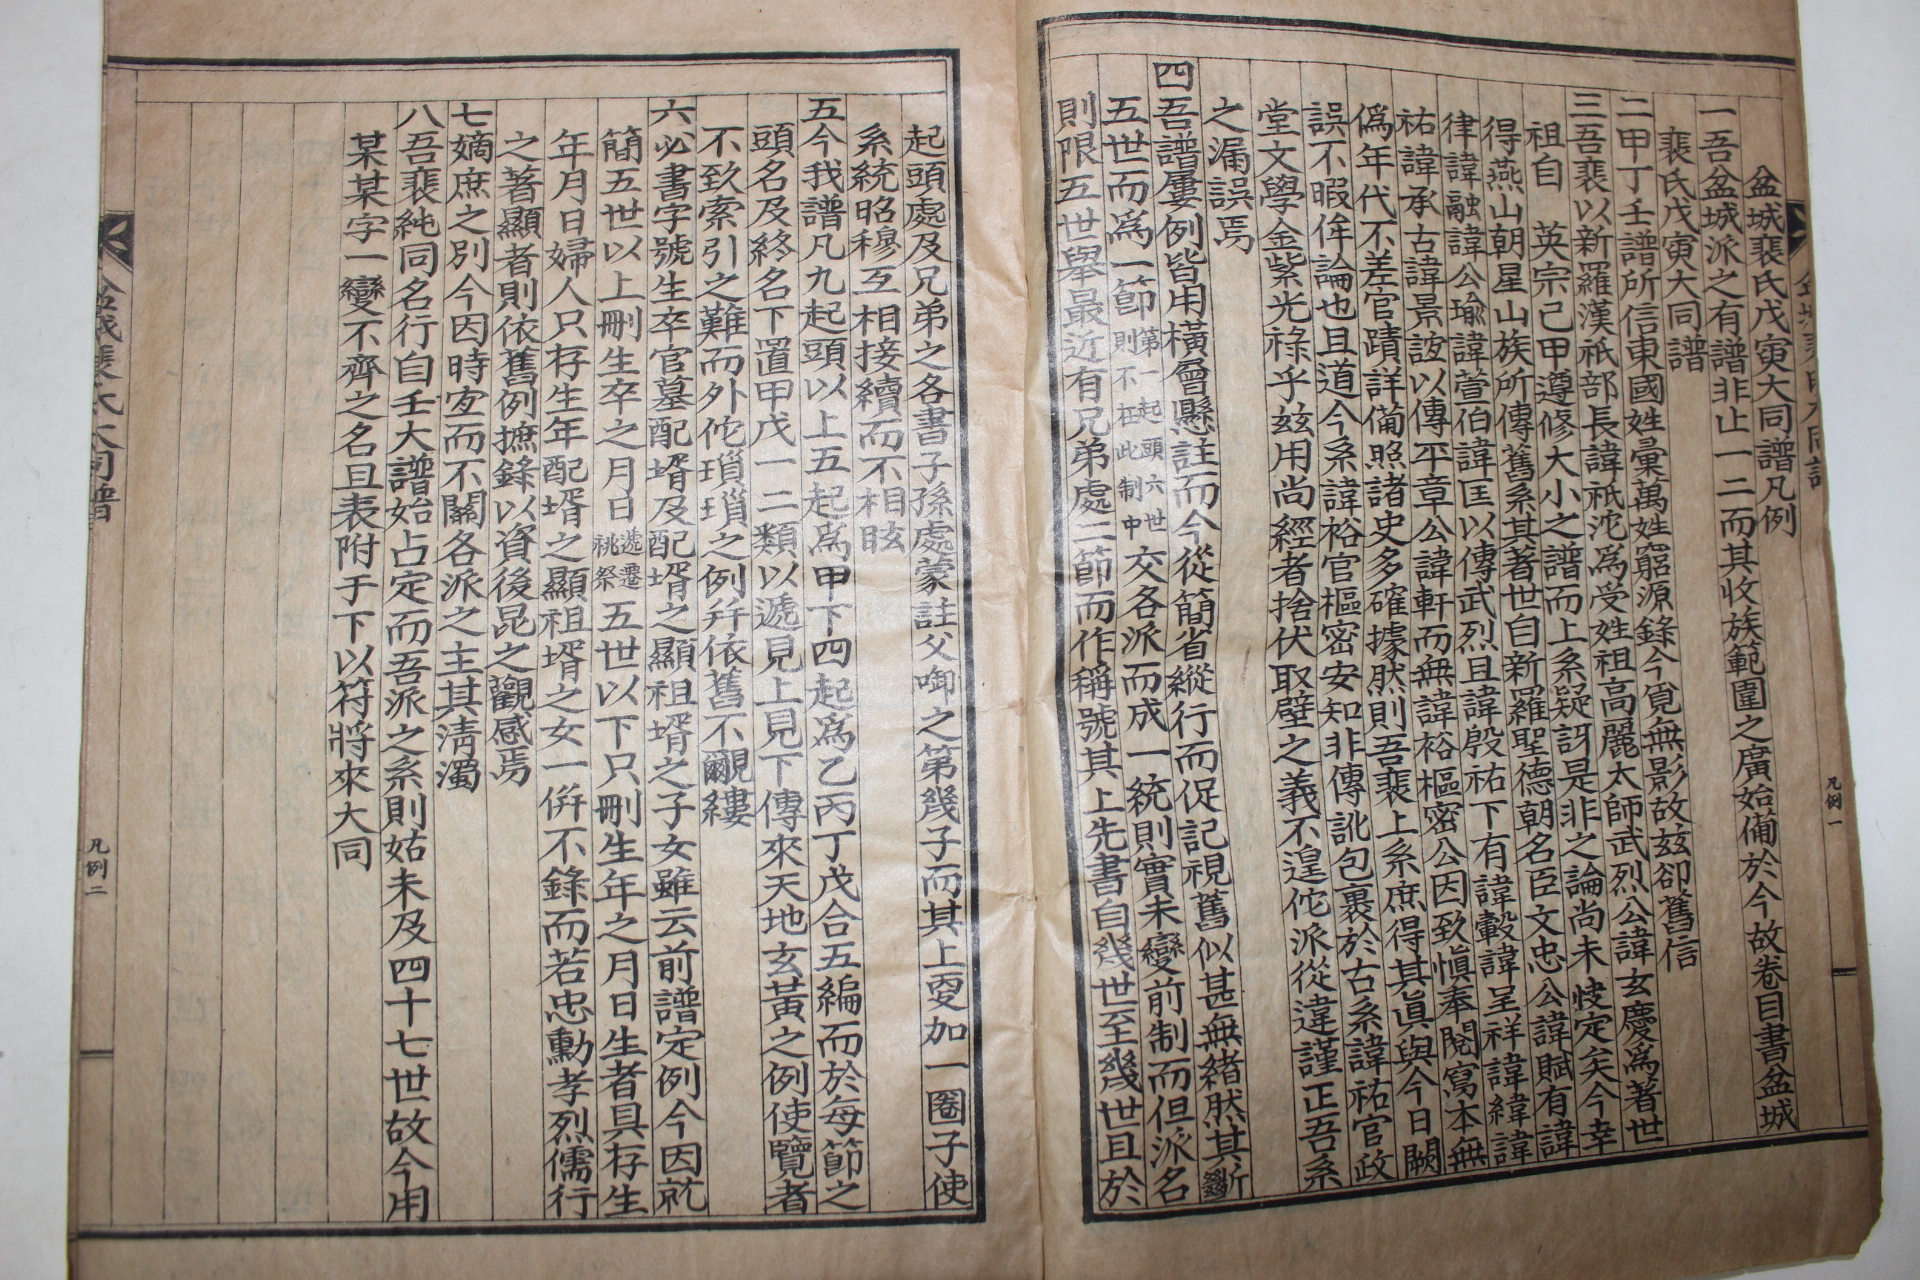 盆城裴氏戊寅大同譜凡例
一吾盆城派之有譜非止一二而其收族範圍之廣始備於今故卷目書盆城
裴氏戊寅大同譜
二甲丁壬譜所信東國姓彙萬姓窮源錄今覓無影故玆卻舊信
三吾裴以新羅漢祇部長諱祇沱爲受姓祖高麗太師武烈公諱玄慶爲著世
祖自 英宗己甲遵修大小之譜而上系疑訝是非之論尚未快定矣今幸
得燕山朝星山族所傳舊系其著世自新羅聖德朝名臣文忠公諱賦有諱
律諱融諱公瑜諱萱伯諱匡以傳武烈且諱殷祐下有諱轂諱呈祥諱緯諱
祐諱承古諱景諱以傳平章公諱軒而無諱裕樞密公因致愼奉閱寫本無
僞年代不差官蹟詳備照諸史多確據然則吾裴上系庶得其眞與今日闕
誤不暇侔論也且道今系諱裕官樞密安知非傳訛包裹於古系諱祐官政
堂文學金紫光祿乎玆用尚經者捨伏取壁之義不遑佗派從違謹正吾系
之漏誤焉
四吾譜屢例皆用橫層懸註而今從簡省縱行而促記視舊似甚無緖然其斷
五世而爲一節第一起頭六世則不在此制中交各派而成一統則實未變前制而但派名
則限五世舉最近有兄弟處二節而作稱號其上先書自幾世至幾世且於
起頭處及兄弟之各書子孫處蒙註父啣之第幾子而其上更加一圈子使
系統昭穆互相接續而不相眩
五今我譜凡九起頭以上五起爲甲下四起爲乙丙丁戊合五編而於每節之
頭名及終名下置甲戊一二類以遞見上見下傳來天地玄黃之例使覽者
不致索引之難而外佗瑣瑣之例幷依舊不覼縷
六必書字號生卒官墓配壻及配壻之顯祖壻之子女雖云前譜定例今因就
簡五世以上刪生卒之月日遞遷祧祭五世以下只刪生年之月日生者具存生
年月日婦人只存生年配壻之顯祖壻之女一倂不錄而若忠勳孝烈儒行
之著顯者則依舊例摭錄以資後昆之觀感焉
七嫡庶之別今因時宜而不關各派之主其淸濁
八吾裴純同名行自壬大譜始占定而吾派之系則姑未及四十七世故今用
某某字一變不齊之名且表附于下以符將來大同
盆城裴氏大同譜
凡例一
凡例二